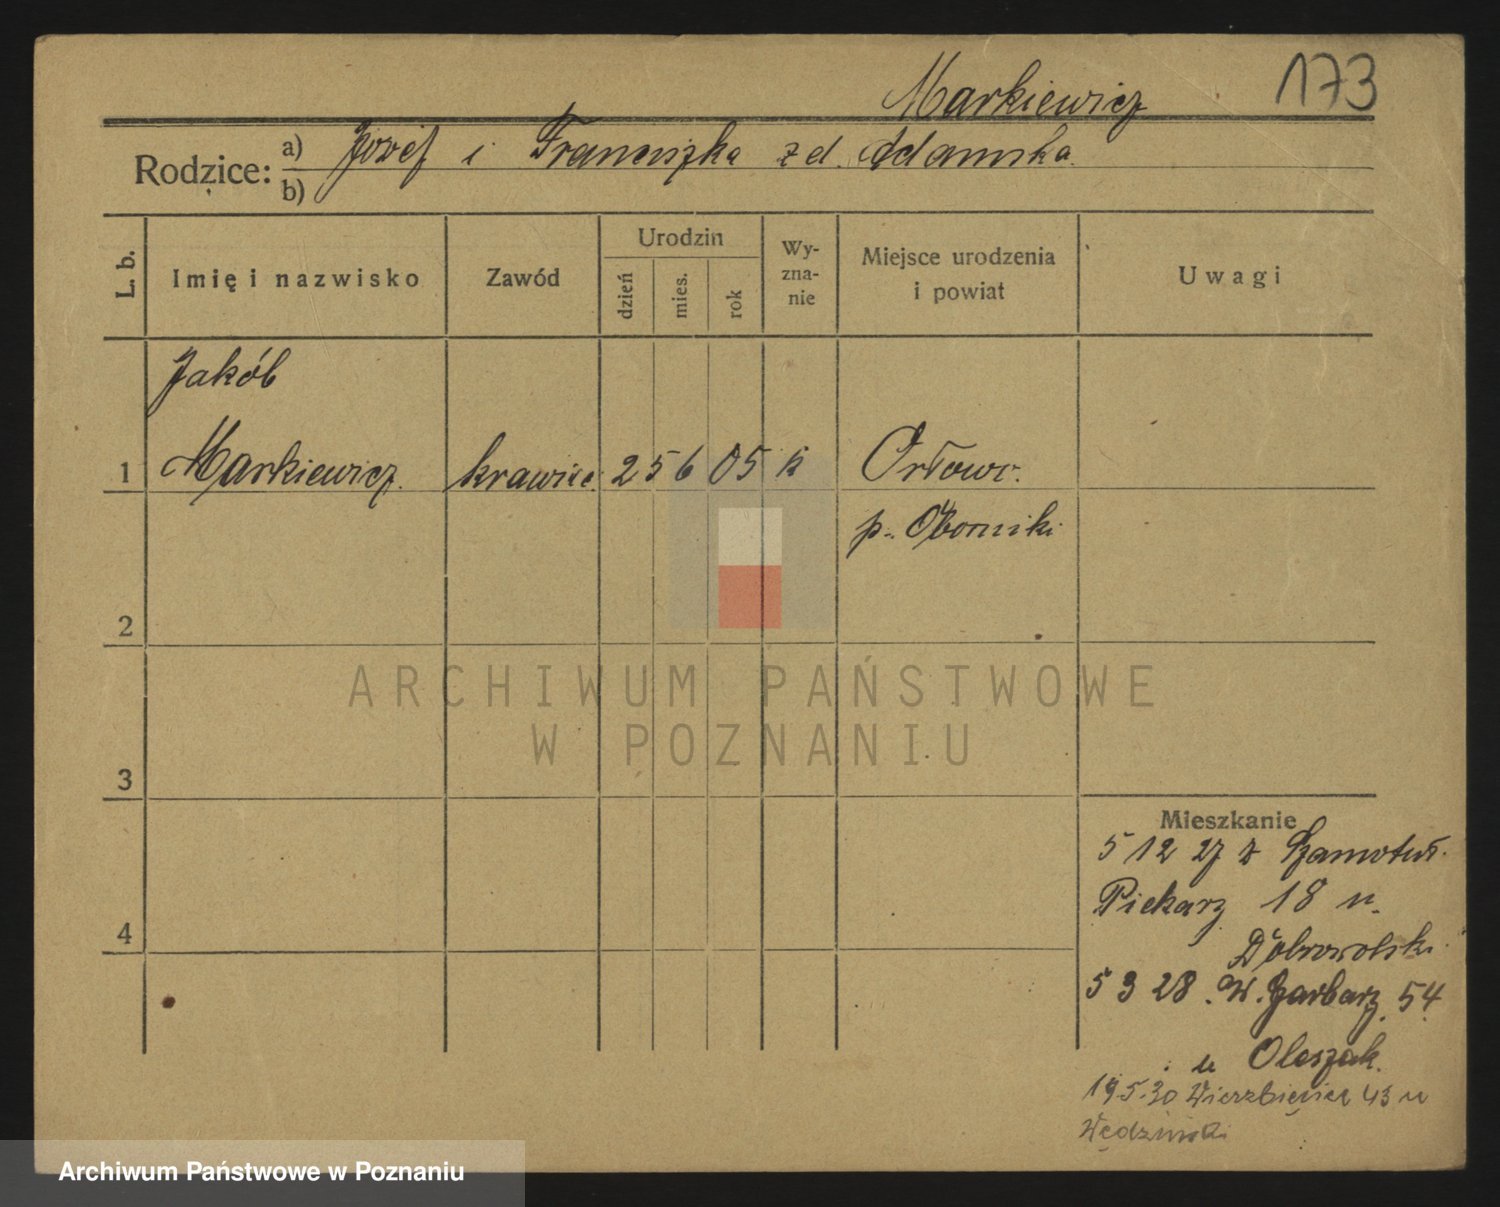 Markiewicz 173
Rodzice: a) Józef i Franciszka z d. Adamska.
b)
L. b. Imię i nazwisko Zawód Urodzin dzień mies. rok Wy-zna-nie Miejsce urodzenia i powiat Uwagi
Jakób
1 Markiewicz. krawiec 25 6 05 k Orłowo.
p. Oborniki
2
ARCHIWUM PAŃSTWOWE
W POZNANIU
3
Mieszkanie
5 12 27 z Szamotuł.
Piekarz 18 u.
4
Dobrowolski.
5 3 28. W. Garbarz. 54
u Oleszak.
19.5.30 Wierzbięcice 43 u
Wędzinski
Archiwum Państwowe w Poznaniu